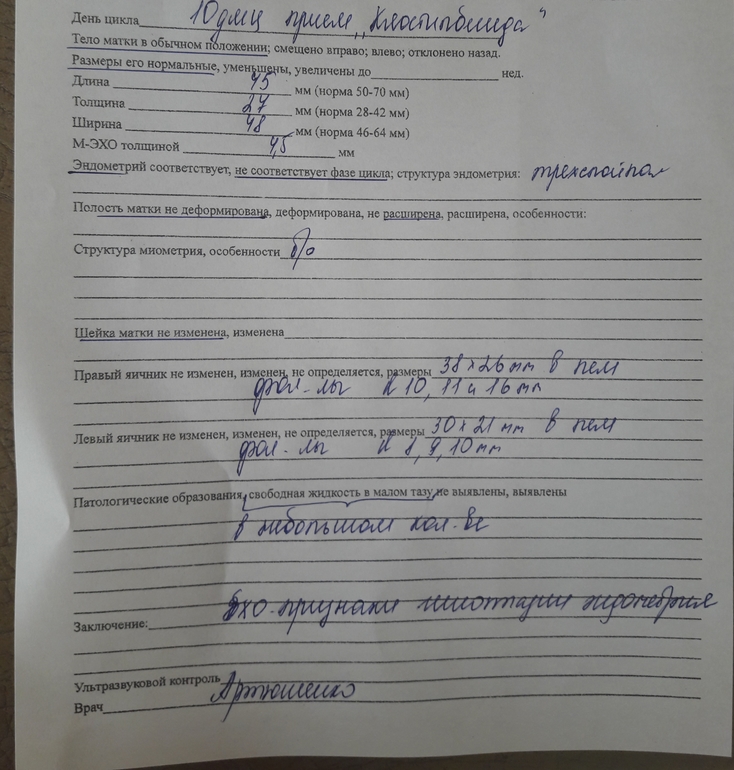 День цикла 10 дмц прием „Клостилбегида"
Тело матки в обычном положении; смещено вправо; влево; отклонено назад.
Размеры его нормальные, уменьшены, увеличены до нед.
Длина 45 мм (норма 50-70 мм)
Толщина 27 мм (норма 28-42 мм)
Ширина 48 мм (норма 46-64 мм)
М-ЭХО толщиной 4,5 мм
Эндометрий соответствует, не соответствует фазе цикла; структура эндометрия: трехслойная
Полость матки не деформирована, деформирована, не расширена, расширена, особенности:
Структура миометрия, особенности б/о
Шейка матки не изменена, изменена
Правый яичник не изменен, изменен, не определяется, размеры 38 х 26 мм в нем
фол-лы d 10, 11 и 16 мм
Левый яичник не изменен, изменен, не определяется, размеры 30 х 21 мм в нем
фол-лы d 8, 9, 10 мм
Патологические образования, свободная жидкость в малом тазу, не выявлены, выявлены
в небольшом кол-ве
Эхо-признаки гипоплазии эндометрия
Заключение:
Ультразвуковой контроль
Врач Артюшенко